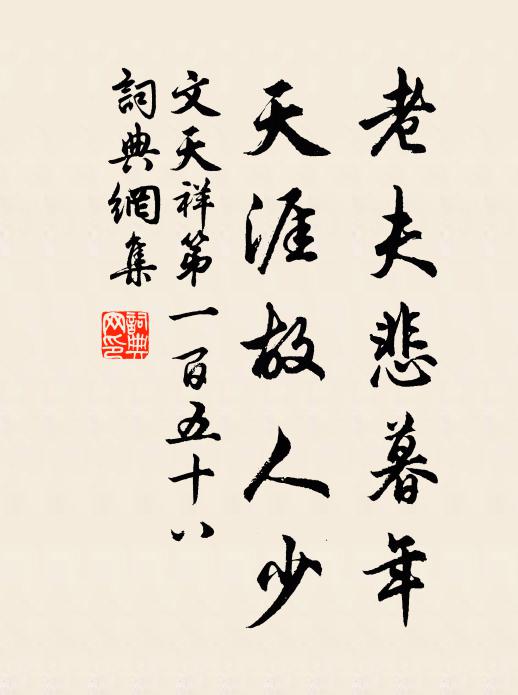 老夫悲暮年
天涯故人少
文天祥第一百五十八
詞典網集
詞典網印